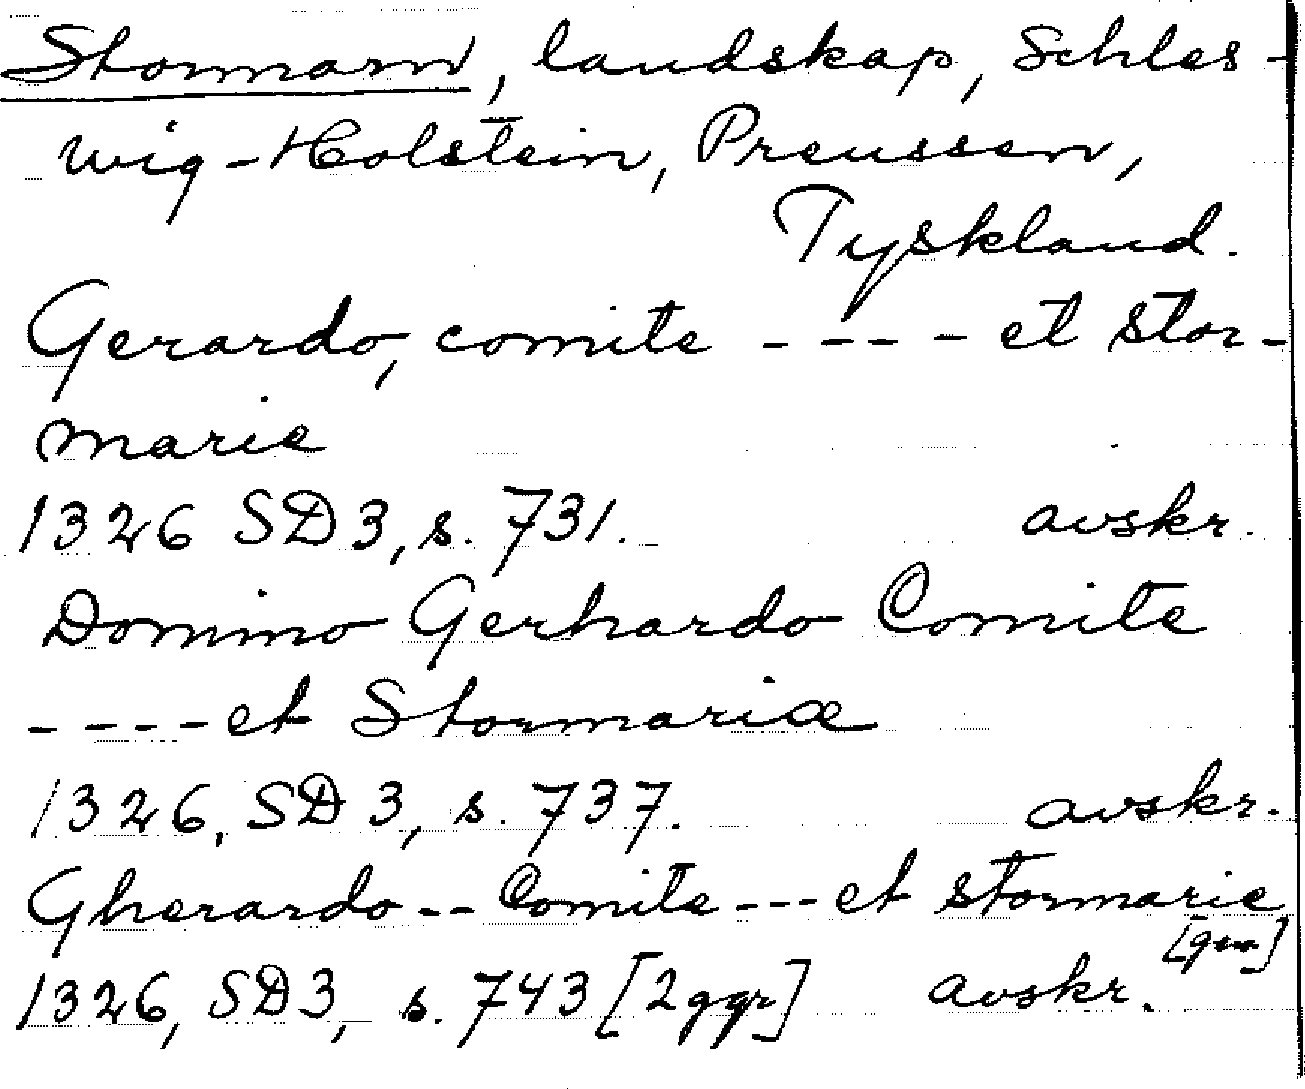 Stormarn, landskap, Schles-
wig-Holstein, Preussen,
Tyskland.
Gerardo, comite ---- et stor-
marie
1326 SD 3, s. 731. avskr.
Domino Gerhardo Comite
---- et Stormariæ
1326, SD 3, s. 737. avskr.
Gherardo -- Comite --- et stormarie
[gen]
1326, SD 3, s. 743 [2 ggr] avskr.